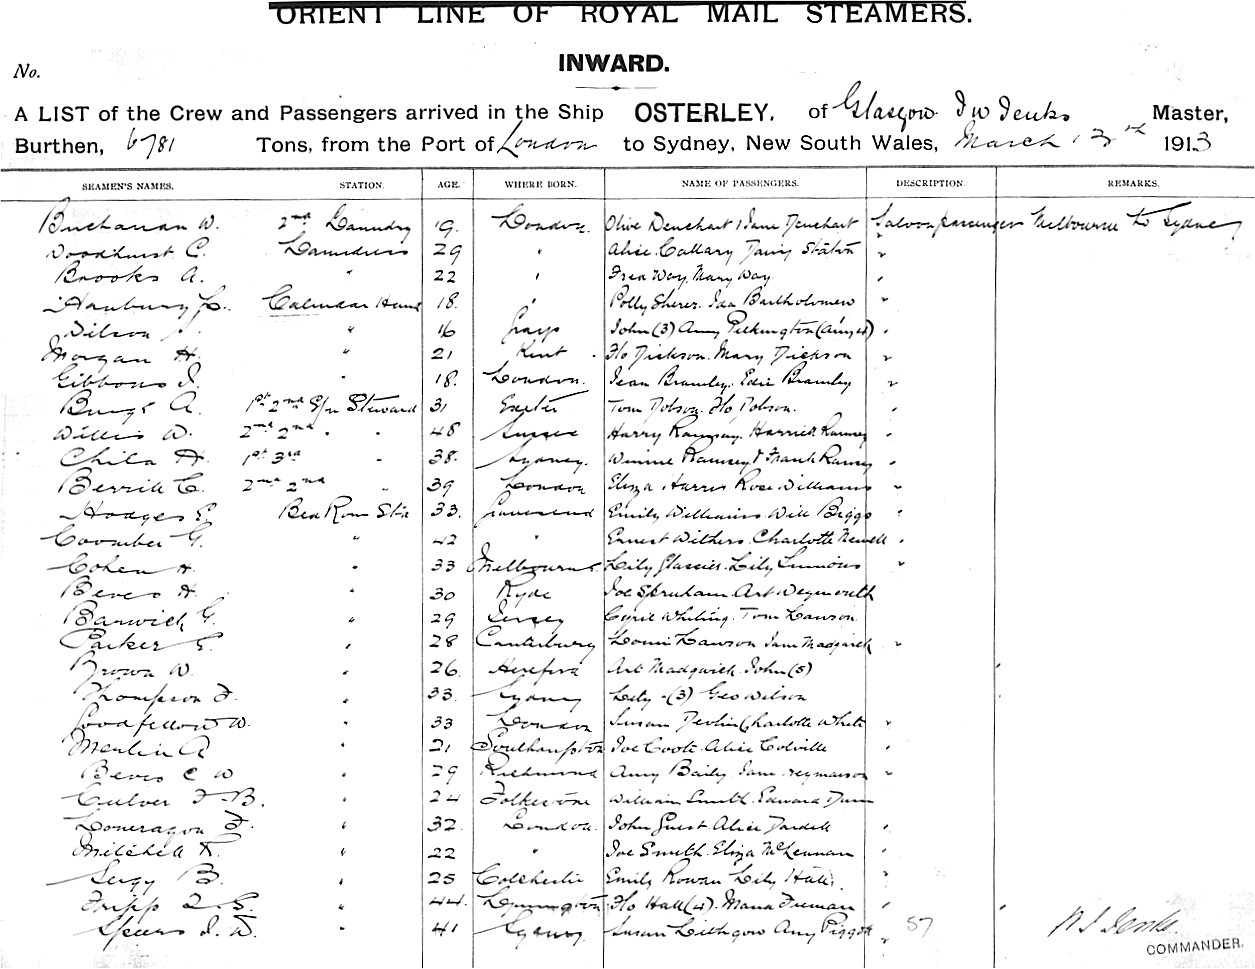 ORIENT LINE OF ROYAL MAIL STEAMERS.
INWARD.
No.
A LIST of the Crew and Passengers arrived in the Ship OSTERLEY. of Glasgow Master,
Burthen, 6781 Tons, from the Port of London to Sydney, New South Wales, March 1913
SEAMEN'S NAMES. STATION. AGE. WHERE BORN. NAME OF PASSENGERS. DESCRIPTION. REMARKS.
Buchanan W. 2nd Laundry 19. London. Olive Denehart Jane Denehart Saloon passenger Melbourne to Sydney
Woodhurst C. 29 " Alice Callary Daisy Station "
Brooks A. " 22 " Fred Way. Mary Way "
Hanbury 18. " Polly Sherer. Ida Bartholomew "
Wilson " 16 Grays John (3) Amy Pilkington "
Morgan H. " 21 Kent Flo Dickson. Mary Dickson "
Gibbons J. " 18. London. Jean Bramley. Edie Bramley "
A. 1st 2nd Steward 31 Exeter Tom Dobson. Flo Dobson. "
Willis W. 2nd 2nd " " 48 Sussex Harry Ramsay. Harriet Ramsey "
Child H. 1st 3rd " 38. Sydney. Winnie Ramsey Frank Ramsey "
Berrill C. 2nd 2nd " 39 London Eliza Harris Rose Williams "
Hodges E. Bed Room Std 33. Gravesend Emily Williams Will Biggs "
Coomber G. " 42 " Ernest Withers. Charlotte Newell "
Cohen H " 33 Melbourne. Lily Lily "
Beves H. " 30 Ryde Joe Art Weymouth
Barwick G. " 29 Jersey Cyril Whiting. Tom Lawson.
Parker E. " 28 Canterbury Lawson Jane Madgwick "
Brown W. " 26 Hereford Art Madgwick. John (5)
Thompson F. " 33 Sydney Lily (3) Geo Wilson
Goodfellow W. " 33 London Susan Devlin Charlotte White "
A " 21 Southampton Joe Coote. Alice Colville "
Beves C W " 29 Richmond Amy Baily. Jane "
Culver F. B. " 24 Folkestone William Smith. Edward Dunn
Loneragon F. " 32 London. John Guest. Alice "
Mitchell F. " 22 " Joe Smith. Eliza McLennan "
B. " 25 Colchester Emily Rowan Lily Hall. "
Fripp G. " 44. Lymington Flo Hall (4). "
Speers J. W. " 41 Sydney Susan Lithgow Amy Piggott " 57
COMMANDER.